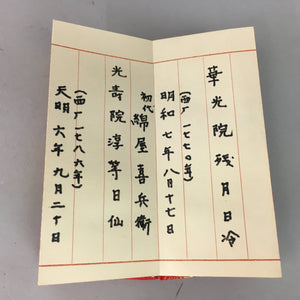 華光院残月日冷
(西厂一七七〇年)
明和七年八月十七日
初代 綿屋喜兵衛
光壽院淳等日仙
(西厂一七八六年)
天明六年九月二十日